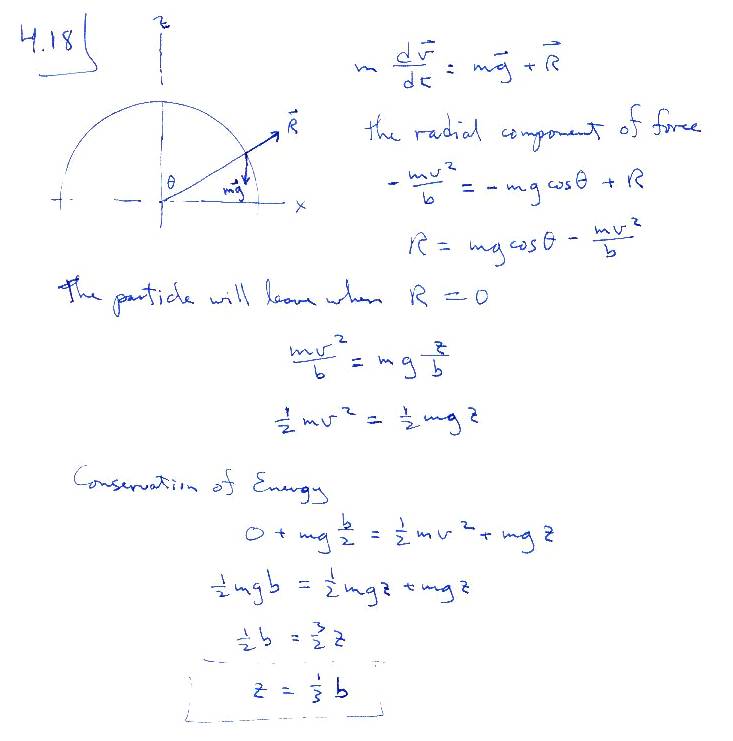 4.18
z
θ
R⃗
mg⃗
x
m dv⃗/dt = mg⃗ + R⃗
the radial component of force
- mv²/b = - mg cosθ + R
R = mg cosθ - mv²/b
The particle will leave when R = 0
mv²/b = mg z/b
½ mv² = ½ mg z
Conservation of Energy
0 + mg b/2 = ½ mv² + mg z
½ mgb = ½ mgz + mgz
½ b = 3/2 z
z = ⅓ b